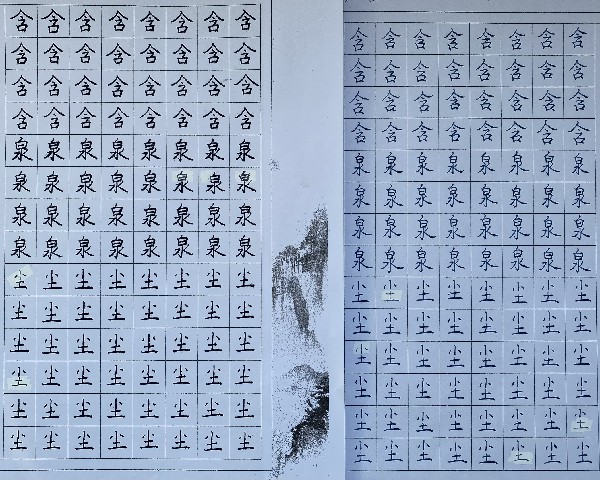 含含含含含含含含
含含含含含含含含
含含含含含含含含
含含含含含含含含
泉泉泉泉泉泉泉泉
泉泉泉泉泉泉泉泉
泉泉泉泉泉泉泉泉
泉泉泉泉泉泉泉泉
尘尘尘尘尘尘尘尘
尘尘尘尘尘尘尘尘
尘尘尘尘尘尘尘尘
尘尘尘尘尘尘尘尘
尘尘尘尘尘尘尘尘
尘尘尘尘尘尘尘尘
含含含含含含含含
含含含含含含含含
含含含含含含含含
含含含含含含含含
泉泉泉泉泉泉泉泉
泉泉泉泉泉泉泉泉
泉泉泉泉泉泉泉泉
泉泉泉泉泉泉泉泉
尘尘尘尘尘尘尘尘
尘尘尘尘尘尘尘尘
尘尘尘尘尘尘尘尘
尘尘尘尘尘尘尘尘
尘尘尘尘尘尘尘尘
尘尘尘尘尘尘尘尘